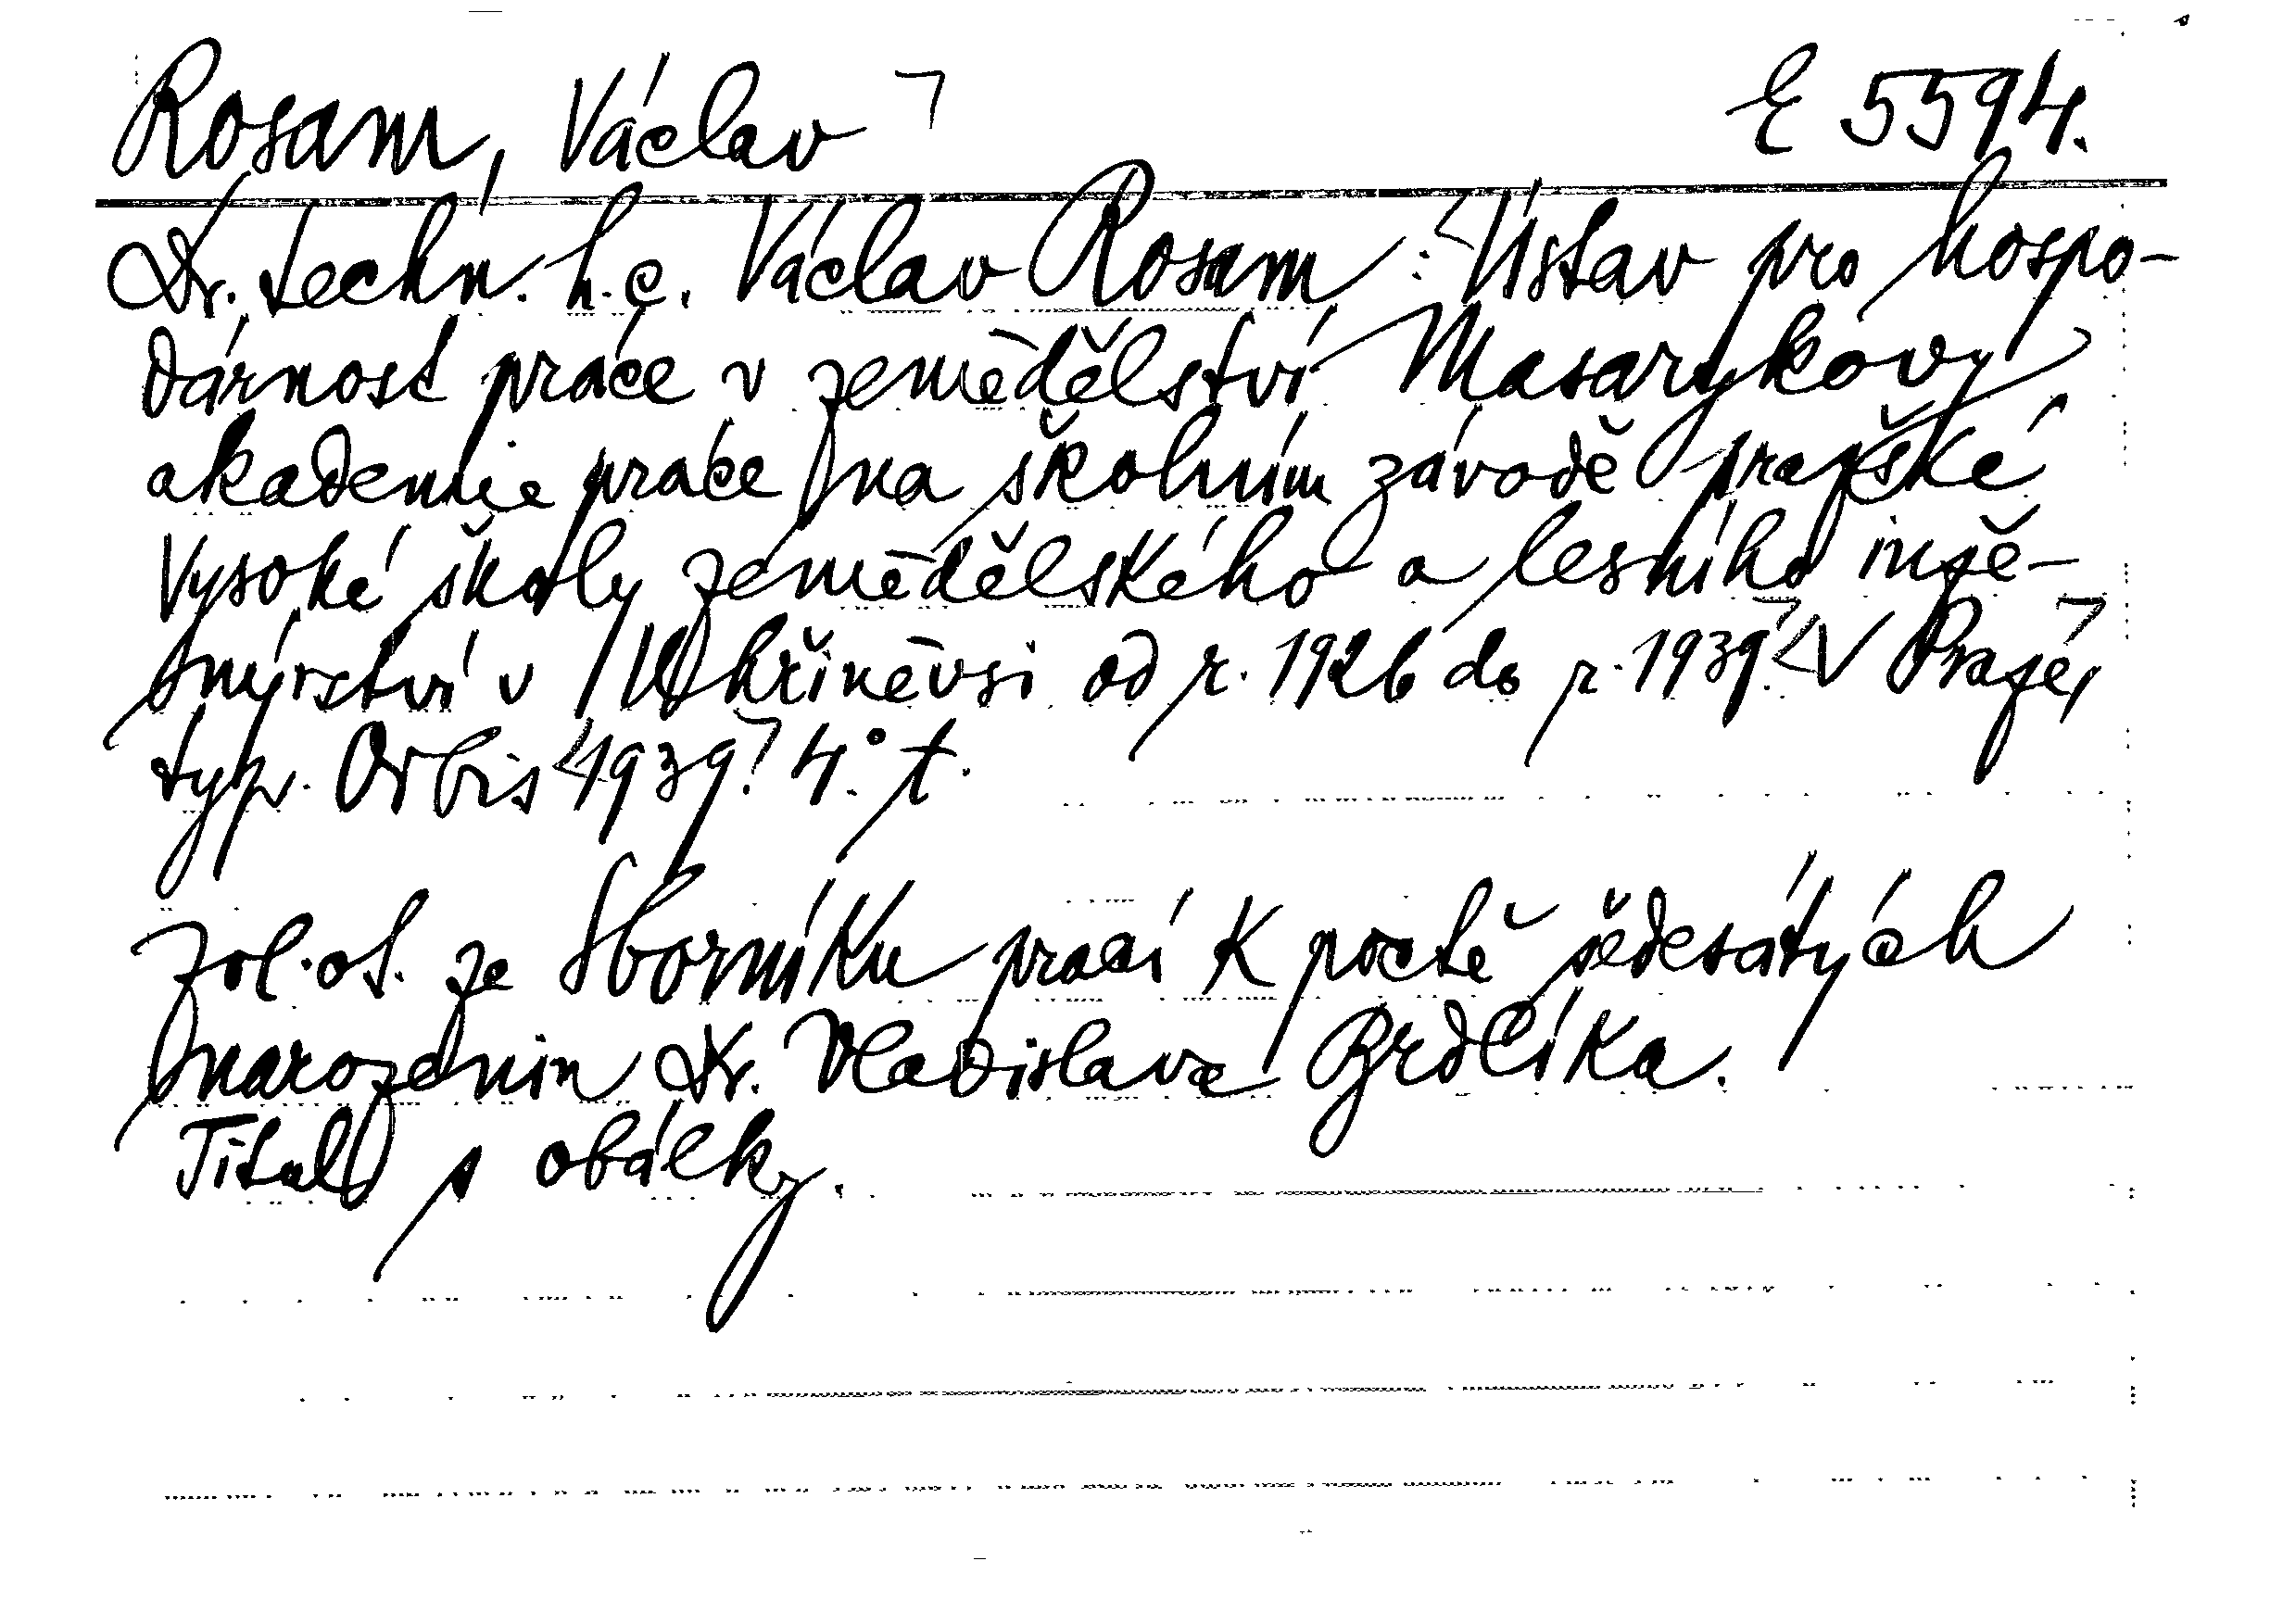 Rosam, Václav ┐ E 5594.
Dr. techn. h. c. Václav Rosam: <Ústav pro hospo-
dárnost práce v zemědělství Masarykovy
akademie práce na školním závodě pražské
Vysoké školy zemědělského a lesního inže-
nýrství v Uhříněvsi od r. 1926 do r. 1939.┐ <V Praze,┐
typ. Orbis <1939.┐ 4.° t.
Zvl. ot. ze Sborníku prací k poctě šedesátých
narozenin Dr. Vladislava Brdlíka.
Titul s obálky.